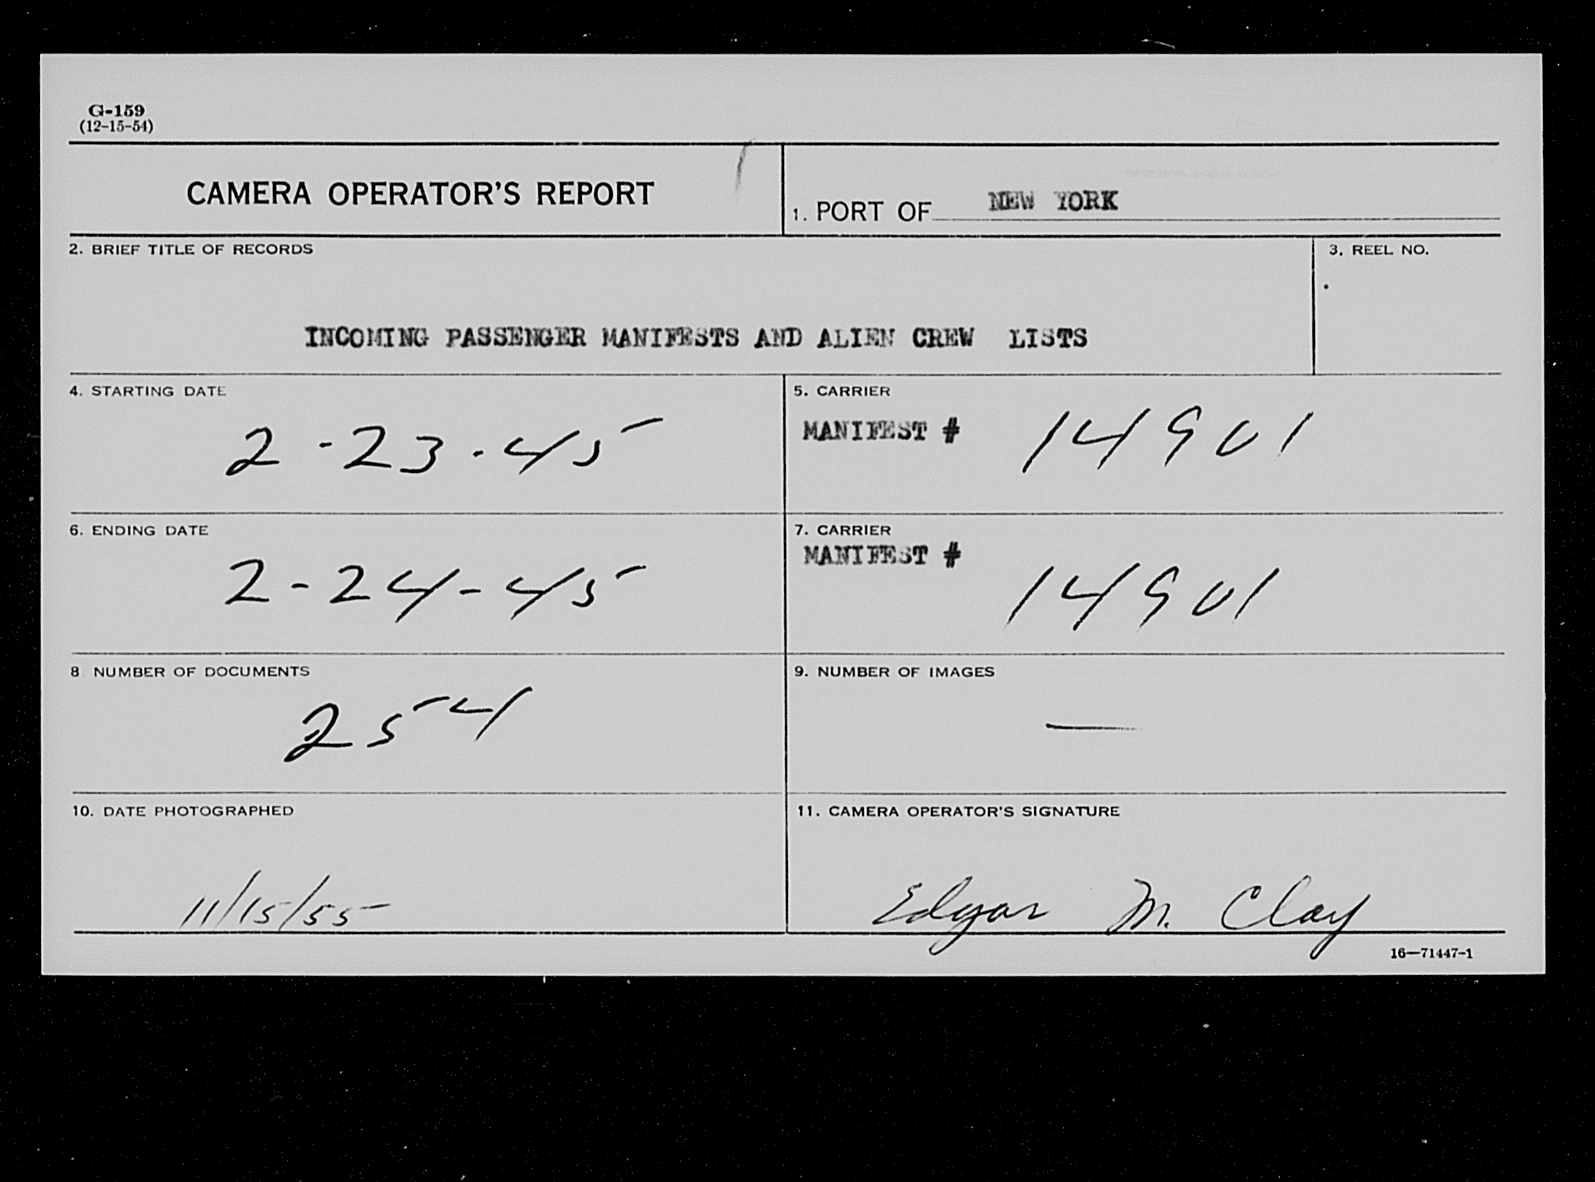 G-159
(12-15-54)
CAMERA OPERATOR'S REPORT
1. PORT OF NEW YORK
2. BRIEF TITLE OF RECORDS
3. REEL NO.
INCOMING PASSENGER MANIFESTS AND ALIEN CREW LISTS
4. STARTING DATE
2-23-45
5. CARRIER
MANIFEST # 14901
6. ENDING DATE
2-24-45
7. CARRIER
MANIFEST # 14901
8 NUMBER OF DOCUMENTS
254
9. NUMBER OF IMAGES
—
10. DATE PHOTOGRAPHED
11/15/55
11. CAMERA OPERATOR'S SIGNATURE
Edgar M. Clay
16—71447-1